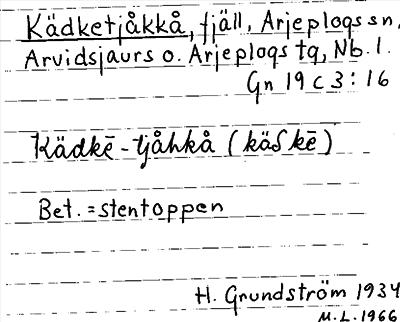 Kädketjåkkå, fjäll, Arjeplogs sn,
Arvidsjaurs o. Arjeplogs tg, Nb. l.
Gn 19 c 3:16
Kädkē-tjåhkå (käđkē)
Bet. = stentoppen
H. Grundström 1934
M.L. 1966